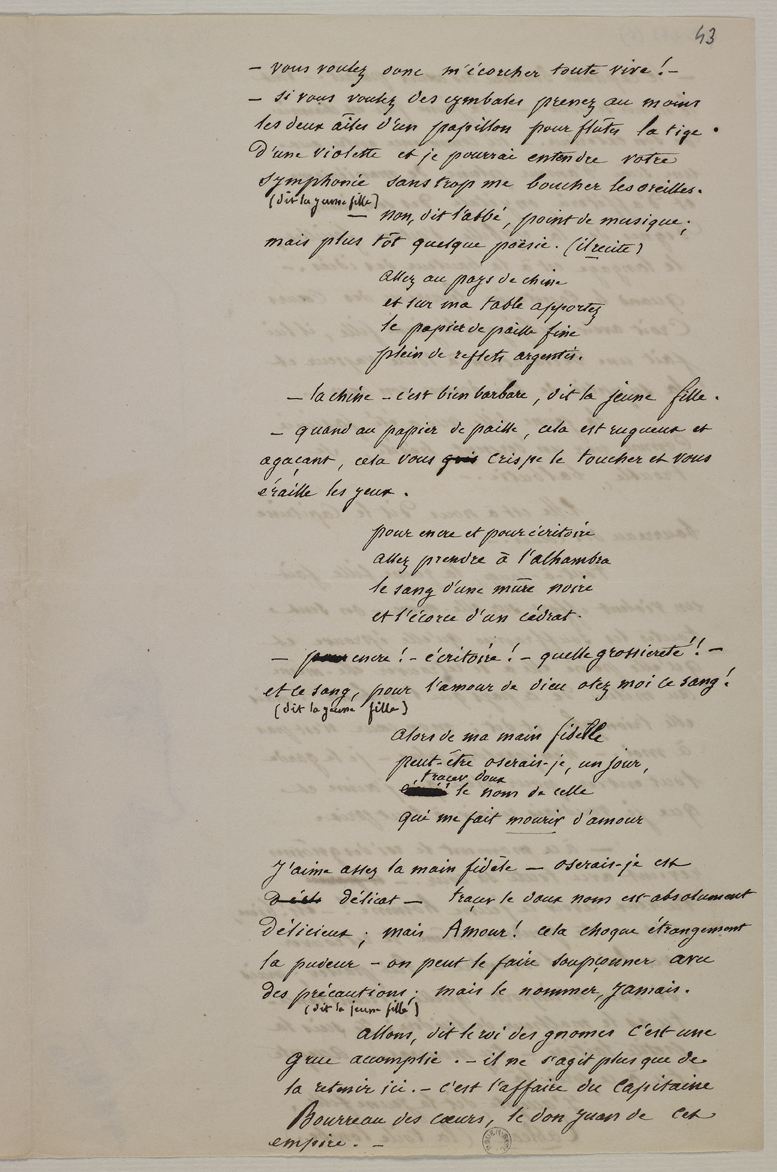 43
– vous voulez donc m'écorcher toute vive ! –
– si vous voulez des cymbales prenez au moins
les deux aîles d'un papillon pour flûte la tige
d'une violette et je pourrai entendre votre
symphonie sans trop me boucher les oreilles.
(dit la jeune fille)
– non, dit l'abbé, point de musique ;
mais plus tôt quelque poësie. (il recite)
allez au pays de chine
et sur ma table apportez
le papier de paille fine
plein de reflets argentés.
– la chine – c'est bien barbare, dit la jeune fille.
– quand au papier de paille, cela est rugueux et
agaçant, cela vous crispe le toucher et vous
éraille les yeux.
pour encre et pour écritoire
allez prendre à l'alhambra
le sang d'une mûre noire
et l'écorce d'un cédrat.
– pour encre ! – écritoire ! – quelle grossiereté !! –
et ce sang, pour l'amour de dieu otez moi ce sang !
(dit la jeune fille)
alors de ma main fidelle
peut-être oserais-je, un jour,
tracer doux
le nom de celle
qui me fait mourir d'amour
J'aime assez la main fidèle – oserais-je est
délicat – tracer le doux nom est absolument
délicieux ; mais Amour ! cela choque étrangement
la pudeur – on peut le faire soupçonner avec
des précautions ; mais le nommer, Jamais.
(dit la jeune fille)
allons, dit le roi des gnomes c'est une
grue acomplie. – il ne s'agit plus que de
la retenir ici. – c'est l'affaire du Capitaine
Bourreau des cœurs, le don Juan de cet
empire. –